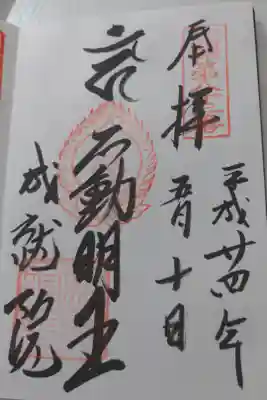 奉拝
平成廿四年
五月十日
不動明王
成就院